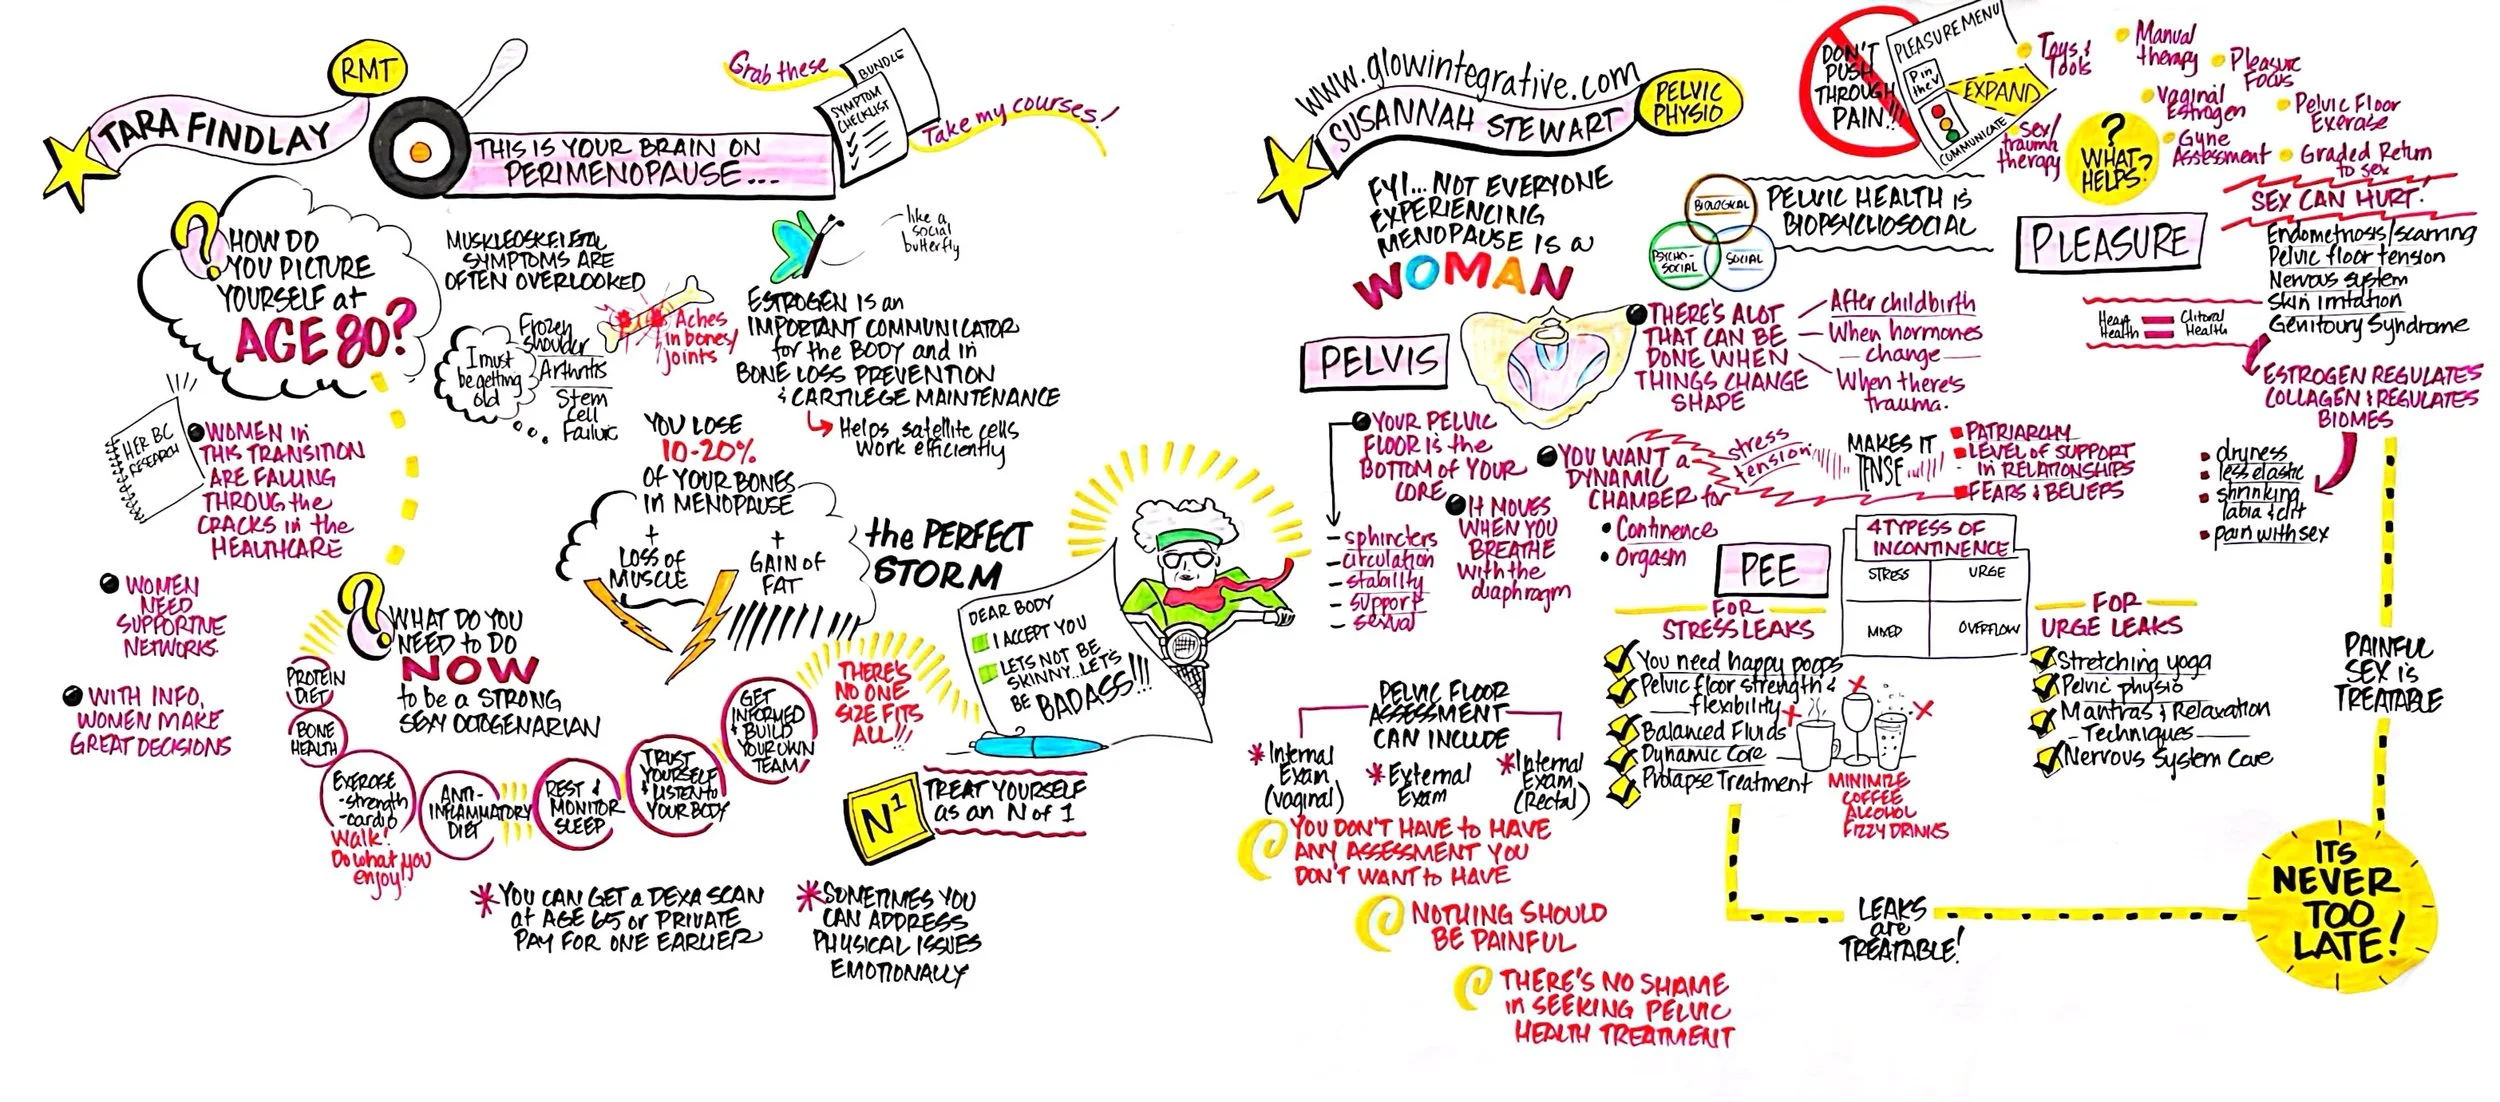 RMT
TARA FINDLAY
THIS IS YOUR BRAIN ON
PERIMENOPAUSE...
Grab these
BUNDLE
SYMPTOM
CHECKLIST
Take my courses!
HOW DO
YOU PICTURE
YOURSELF at
AGE 80?
MUSKLEOSKELETAL
SYMPTOMS ARE
OFTEN OVERLOOKED
I must
be getting
old
Frozen
shoulder
Arthritis
Stem
Cell
Failure
Aches
in bones/
joints
like a
social
butterfly
ESTROGEN IS an
IMPORTANT COMMUNICATOR
for the BODY and in
BONE LOSS PREVENTION
& CARTILEGE MAINTENANCE
Helps satellite cells
work efficiently
HER BC
RESEARCH
WOMEN in
THIS TRANSITION
ARE FALLING
THROUG the
CRACKS in the
HEALTHCARE
WOMEN
NEED
SUPPORTIVE
NETWORKS.
WITH INFO,
WOMEN MAKE
GREAT DECISIONS
YOU LOSE
10-20%
OF YOUR BONES
in MENOPAUSE
+
LOSS of
MUSCLE
+
GAIN of
FAT
the PERFECT
STORM
WHAT DO YOU
NEED to DO
NOW
to be a STRONG
SEXY OCTOGENARIAN
PROTEIN
DIET
BONE
HEALTH
EXERCISE
-strength
-cardio
Walk!
Do what you
enjoy!
ANTI-
INFLAMMATORY
DIET
REST &
MONITOR
SLEEP
TRUST
YOURSELF
& LISTEN to
YOUR BODY
GET
INFORMED
& BUILD
YOUR OWN
TEAM!
THERE'S
NO ONE
SIZE FITS
ALL!!!
DEAR BODY
I ACCEPT YOU
LETS NOT BE
SKINNY...LET'S
BE BADASS!!!
N1
TREAT YOURSELF
as an N of 1
YOU CAN GET a DEXA SCAN
at AGE 65 or PRIVATE
PAY FOR ONE EARLIER
SOMETIMES YOU
CAN ADDRESS
PHYSICAL ISSUES
EMOTIONALLY
www.glowintegrative.com
SUSANNAH STEWART
PELVIC
PHYSIO
FYI... NOT EVERYONE
EXPERIENCING
MENOPAUSE IS a
WOMAN
BIOLOGICAL
PSYCHO-
SOCIAL
SOCIAL
PELVIC HEALTH IS
BIOPSYCHOSOCIAL
PELVIS
THERE'S ALOT
THAT CAN BE
DONE WHEN
THINGS CHANGE
SHAPE
After childbirth
When hormones
change
When there's
trauma.
YOUR PELVIC
FLOOR IS the
BOTTOM OF YOUR
CORE
- sphincters
- circulation
- stability
- support
- sexual
IT MOVES
WHEN YOU
BREATHE
with the
diaphragm
YOU WANT a
DYNAMIC
CHAMBER for
• Continence
• Orgasm
stress
tension
MAKES IT
TENSE
PATRIARCHY
LEVEL OF SUPPORT
in RELATIONSHIPS
FEARS & BELIEFS
PEE
4 TYPESS OF
INCONTINENCE
STRESS
URGE
MIXED
OVERFLOW
FOR
STRESS LEAKS
You need happy poops
Pelvic floor strength &
flexibility
Balanced Fluids
Dynamic Core
Prolapse Treatment
MINIMIZE
COFFEE
ALCOHOL
FIZZY DRINKS
FOR
URGE LEAKS
Stretching yoga
Pelvic physio
Mantras & Relaxation
Techniques
Nervous System Care
PELVIC FLOOR
ASSESSMENT
CAN INCLUDE
Internal
Exam
(vaginal)
External
Exam
Internal
Exam
(Rectal)
YOU DON'T HAVE to HAVE
ANY ASSESSMENT YOU
DON'T WANT to HAVE
NOTHING SHOULD
BE PAINFUL
THERE'S NO SHAME
in SEEKING PELVIC
HEALTH TREATMENT
DON'T
PUSH
THROUGH
PAIN!!!
PLEASURE MENU
Pin
the V
EXPAND
COMMUNICATE
?
WHAT
HELPS?
Toys &
Tools
Manual
therapy
Pleasure
Focus
Vaginal
Estrogen
Pelvic Floor
Exercise
sex/
trauma
therapy
Gyne
Assessment
Graded Return
to sex
PLEASURE
SEX CAN HURT!
Endometriosis/scarring
Pelvic floor tension
Nervous system
Skin irritation
Genitoury Syndrome
Heart
Health
=
Clitoral
Health
ESTROGEN REGULATES
COLLAGEN & REGULATES
BIOMES
dryness
less elastic
shrinking
labia & clit
pain with sex
PAINFUL
SEX IS
TREATABLE
LEAKS
are
TREATABLE!
ITS
NEVER
TOO
LATE!